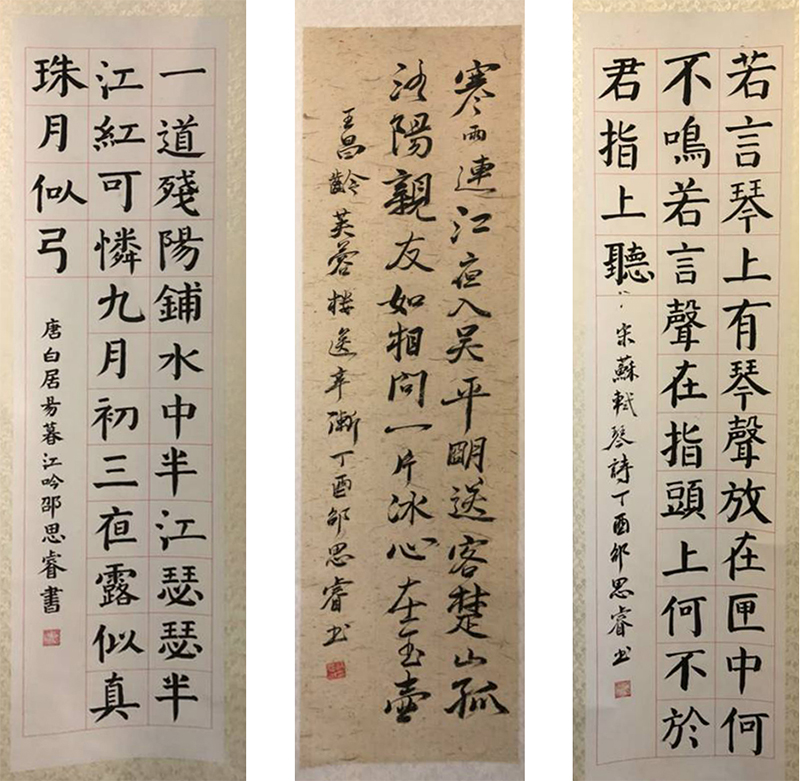 一道殘陽鋪水中半江瑟瑟半
江紅可憐九月初三夜露似真
珠月似弓
唐白居易暮江吟邵思睿書
寒雨連江夜入吴平明送客楚山孤
洛陽親友如相問一片冰心在玉壺
王昌齡芙蓉楼送辛漸丁酉邵思睿书
若言琴上有琴聲放在匣中何
不鳴若言聲在指頭上何不於
君指上聽
宋蘇軾琴詩丁酉邵思睿书